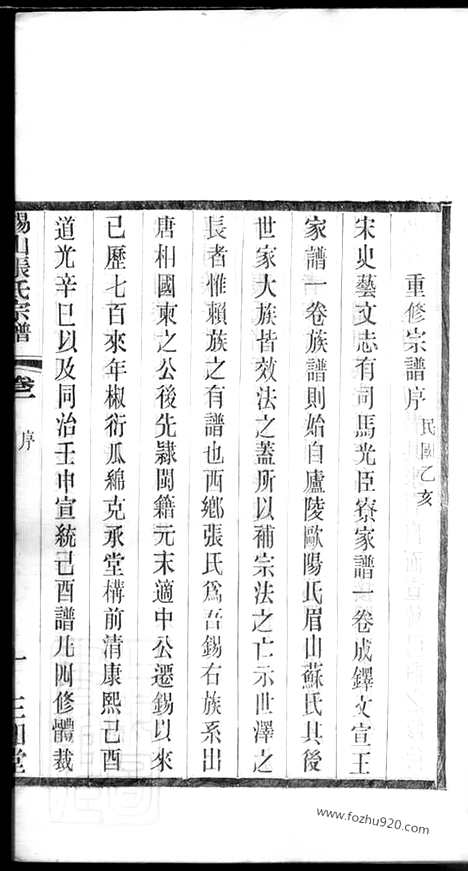 重修宗譜序 民國乙亥
宋史藝文志有司馬光臣寮家譜一卷成鐸文宣王
家譜一卷族譜則始自廬陵歐陽氏眉山蘇氏其後
世家大族皆效法之蓋所以補宗法之亡示世澤之
長者惟賴族之有譜也西鄉張氏爲吾錫右族系出
唐相國柬之公後先隸閩籍元末適中公遷錫以來
已歷七百來年椒衍瓜綿克承堂構前清康熙己酉
道光辛巳以及同治壬申宣統己酉譜凡四修體裁
錫山張氏宗譜 卷一 序 一
www.fozhu920.com